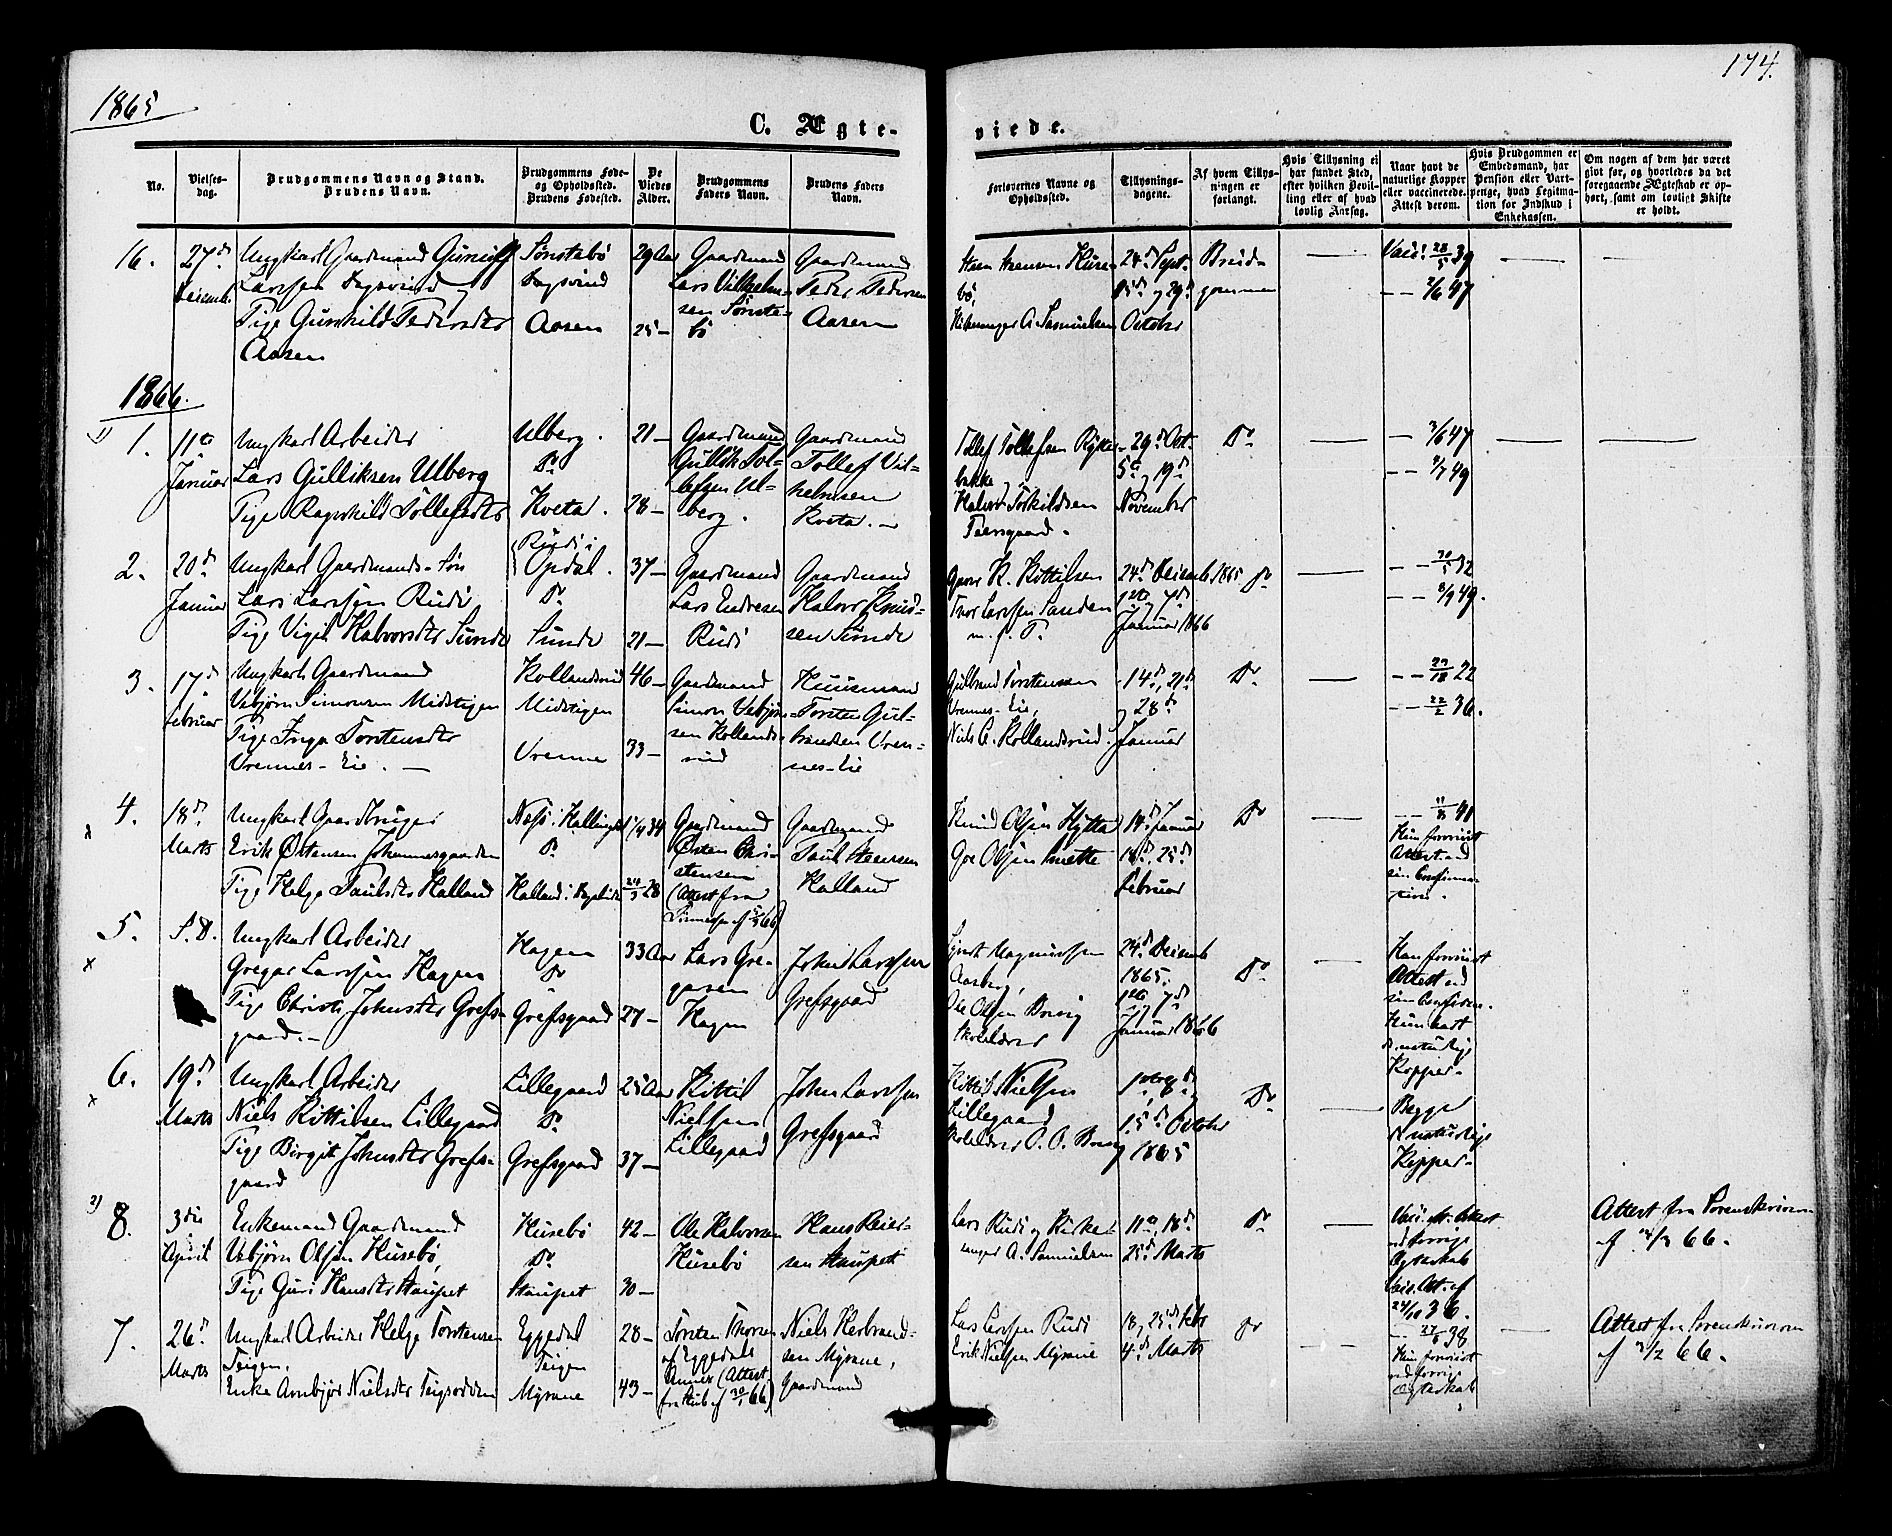 1865
174.
C. Ægte-
viede.
No.
Vielses-
dag.
Brudgommens Navn og Stand.
Brudens Navn.
Brudgommens Føde-
og Opholdssted.
Brudens Fødested.
De
Viedes
Alder.
Brudgommens
Faders Navn.
Brudens Faders
Navn.
Forlovernes Navne og
Opholdssted.
Tillysnings-
dagene.
Af hvem Tillys-
ningen er
forlangt.
Hvis Tillysning ei
har fundet Sted,
efter hvilken Bevil-
ling eller af hvad
lovlig Aarsag.
Naar havt de
naturlige Kopper
eller vaccinerede.
Attest derom.
Hvis Brudgommen er
Embedsmand, har
Pension eller Vart-
penge, hvad Legitima-
tion for Indskud i
Enkekassen.
Om nogen af dem har været
givt før, og hvorledes da det
foregaaende Ægteskab er op-
hørt, samt om lovligt Skifte
er holdt.
16.
27de
Decemb.
Ungkarl Gaardmand
Larssen
Pige Gunhild Pedersdtr
Aasen
Sønstebø
Aasen
29 Aar
25 —
Gaardmand
Lars Vilhelm-
sen Sønste-
bø
Gaardmand
Peder Pedersen
Aasen
Huse-
bø,
Kirkesanger A. Samuelsen
24de Sept.
15de og 29de
October
Brud-
gommen
Vacc: 28/5 39
— 7/6 47
1866.
1.
11te
Januar
Ungkarl Arbeider
Lars Gulliksen Ulberg
Pige Ragnhild Tollefsdtr
Ulberg.
Do
Kveta.
21 —
28 —
Gaardmand
Gullik Tol-
lefsen Ul-
berg.
Gaardmand
Tollef Vil-
helmsen
Kveta. —
Tollef Tollefsen
bakke,
Halvor Torkildsen
29de Oct.
5te og 19de
November
Do
— 7/6 47
— 49
2.
20de
Januar
Ungkarl Gaardmands-Søn
Lars Larssen Rudi
Pige Vigit Halvorsdtr Sunde
Rudi i
Opdal.
Do
Sunde
37 —
21 —
Gaardmand
Lars Endresen
Rudi
Gaardmand
Halvor Knud-
sen Sunde
K. Kittilsen
Tvor Larssen Sanden
24de Decemb. 1865
1ste og 7de
Januar 1866
Do
— 30/5 32
— 8/9 49.
3.
17de
Februar
Ungkarl Gaardmand
Vebjørn Simonsen Midstigen
Pige Inga Torstensdtr
Vrennes-Eie. —
Kollandsrud
Midstigen
Vrenne
46 —
33 —
Gaardmand
Simon Vebjørn-
sen Kollands-
rud
Huusmand
Torsten Gul-
brandsen Vren-
nes-Eie
Gulbrand Torstensen
Vrennes-Eie,
Niels C. Kollandsrud.
14de, 21de
og 28de
Januar
Do
— 22
— 22/2 36.
4.
18de
Marts
Ungkarl Gaardbruger
Erik Østensen Johannesgaarden
Pige Helge Paulsdtr Halland
Næs i Hallingdal
Do
34
28
Gaardmand
Østen Chri-
stensen
(Attest fra
Gaardmand
Paul Steensen
Halland
Knud Olsen Hytta
Goe Olsen
14de Januar
18de, 25de
Februar
Do
— 41
Hun forevist
Attest ved
sin Confirma-
tion.
5.
S. D.
Ungkarl Arbeider
Gregar Larssen Hagen
Pige Christi Johnsdtr Grefs-
gaard. —
Hagen
Do
Grefsgaard
33 Aar
27 —
Lars Gre-
garsen
Hagen
John Larssen
Grefsgaard
Magnussen
Aasberg,
Ole Olsen Braavig
Skolelærer
24de Decemb
1865.
1ste og 7de
Januar 1866
Do
Han forevist
Attest ved
sin Confirm.
Hun havt
de naturlige
Kopper.
6.
19de
Marts
Ungkarl Arbeider
Niels Kittilsen Lillegaard
Pige Birgit Johnsdtr Grefs-
gaard
Lillegaard
Do
Grefsgaard
25 Aar
37 —
Kittil
Nielsen
Lillegaard
John Larssen
Grefsgaard
Kittil Nielsen
Lillegaard
Skolelærer O. O.
1ste og 8de
15de October
1865
Do
Begge
de naturlige
Kopper.
8.
3die
April
Enkemand Gaardmand
Vebjørn Olsen Husebø,
Pige Guri Hansdtr Staupet
Husebø
Do
Staupet
42 —
30 —
Ole Halvorsen
Husebø
Hans Reier-
sen Staupet
Lars Rudi og Kirke-
sanger A. Samuelsen
11te, 18de
25de Marts
Do
Vacc. Attest
ved forrige
Ægteskab
Vacc. Att. af
24/10 36.
Attest fra Sorenskriveren
af 66.
7.
26de
Marts
Ungkarl Arbeider Helge Torstensen
Teigen.
Enke Ambjør Nielsdtr
Eggedal
Teigen
Myrane
28 —
43 —
Torsten
af Eggedals
Annex (Attest
66)
Niels Herbrand-
sen Myrane,
Gaardmand
Lars Larssen Rudi
Erik Nielsen Myrane
18, 25de Febr
4de Marts
Do
— 38
Hun forevist
ved forrige
Ægteskab
Attest fra Sorenskriveren
af 66.